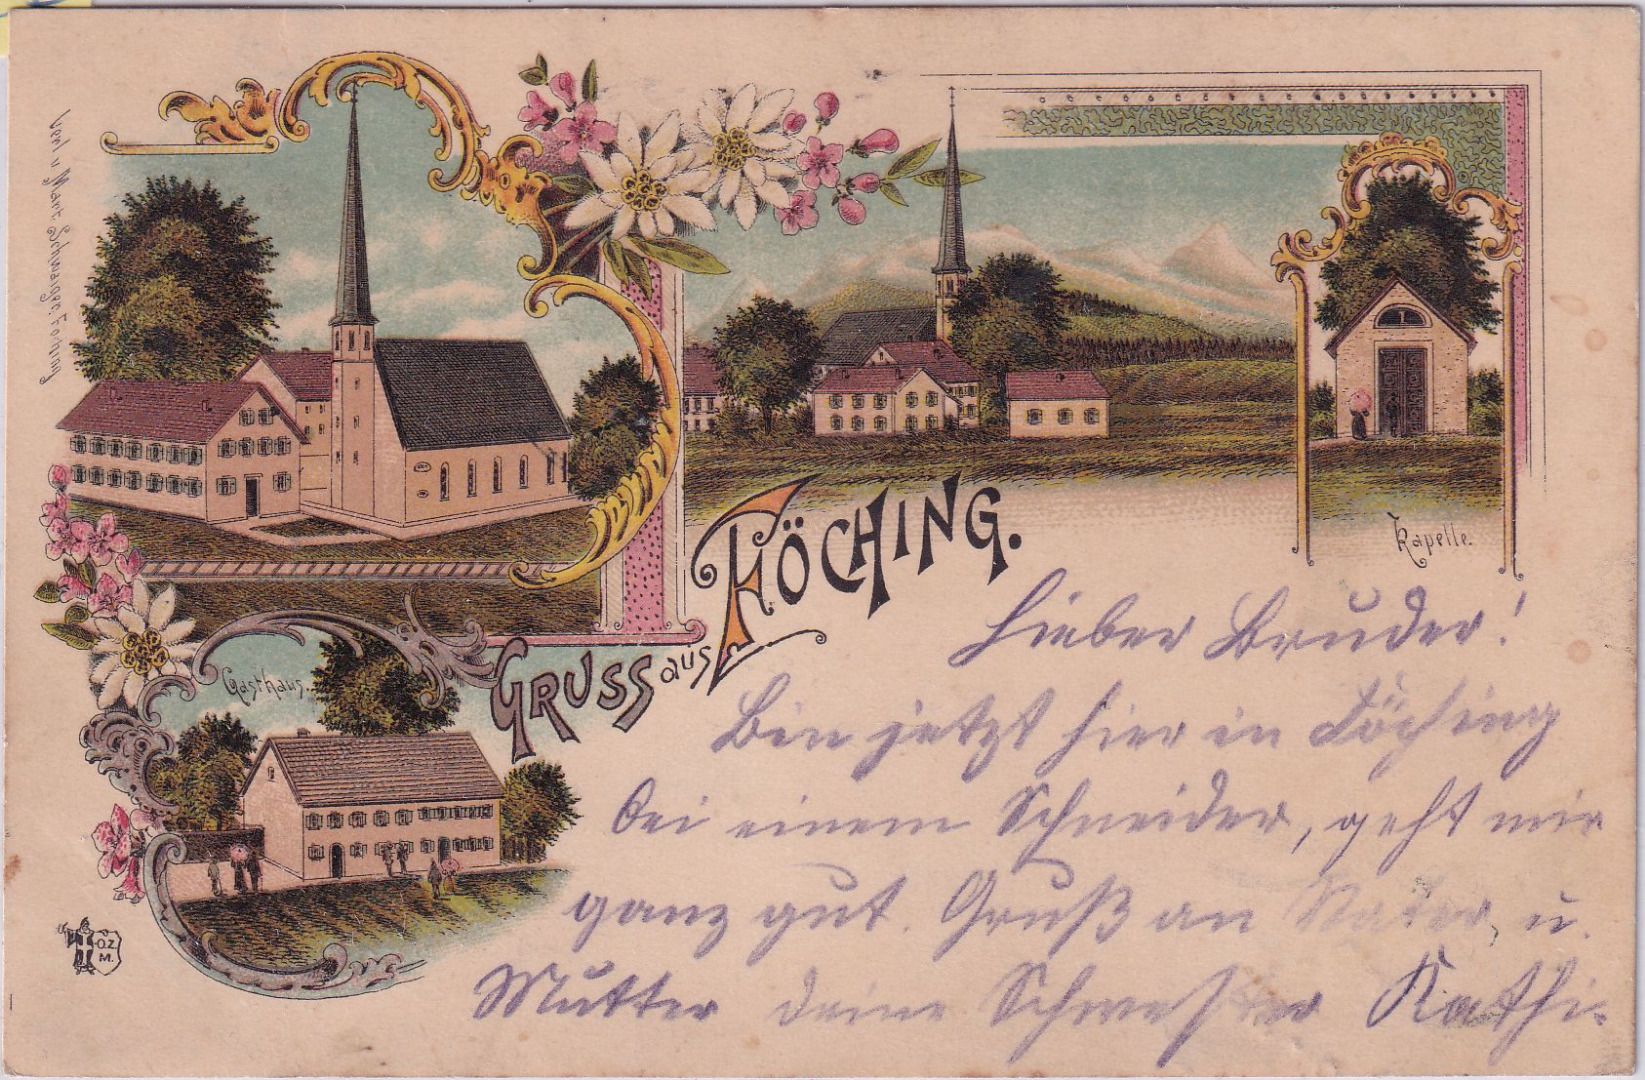 Verl v. Mart. Schwaiger, Föching
Gasthaus.
Kapelle.
GRUSS aus FÖCHING.
Lieber Bruder!
Bin jetzt hier in Föching
bei einem Schneider, geht mir
ganz gut. Gruß an Vater, u.
Mutter deine Schwester Kathi.
O.Z.
M.